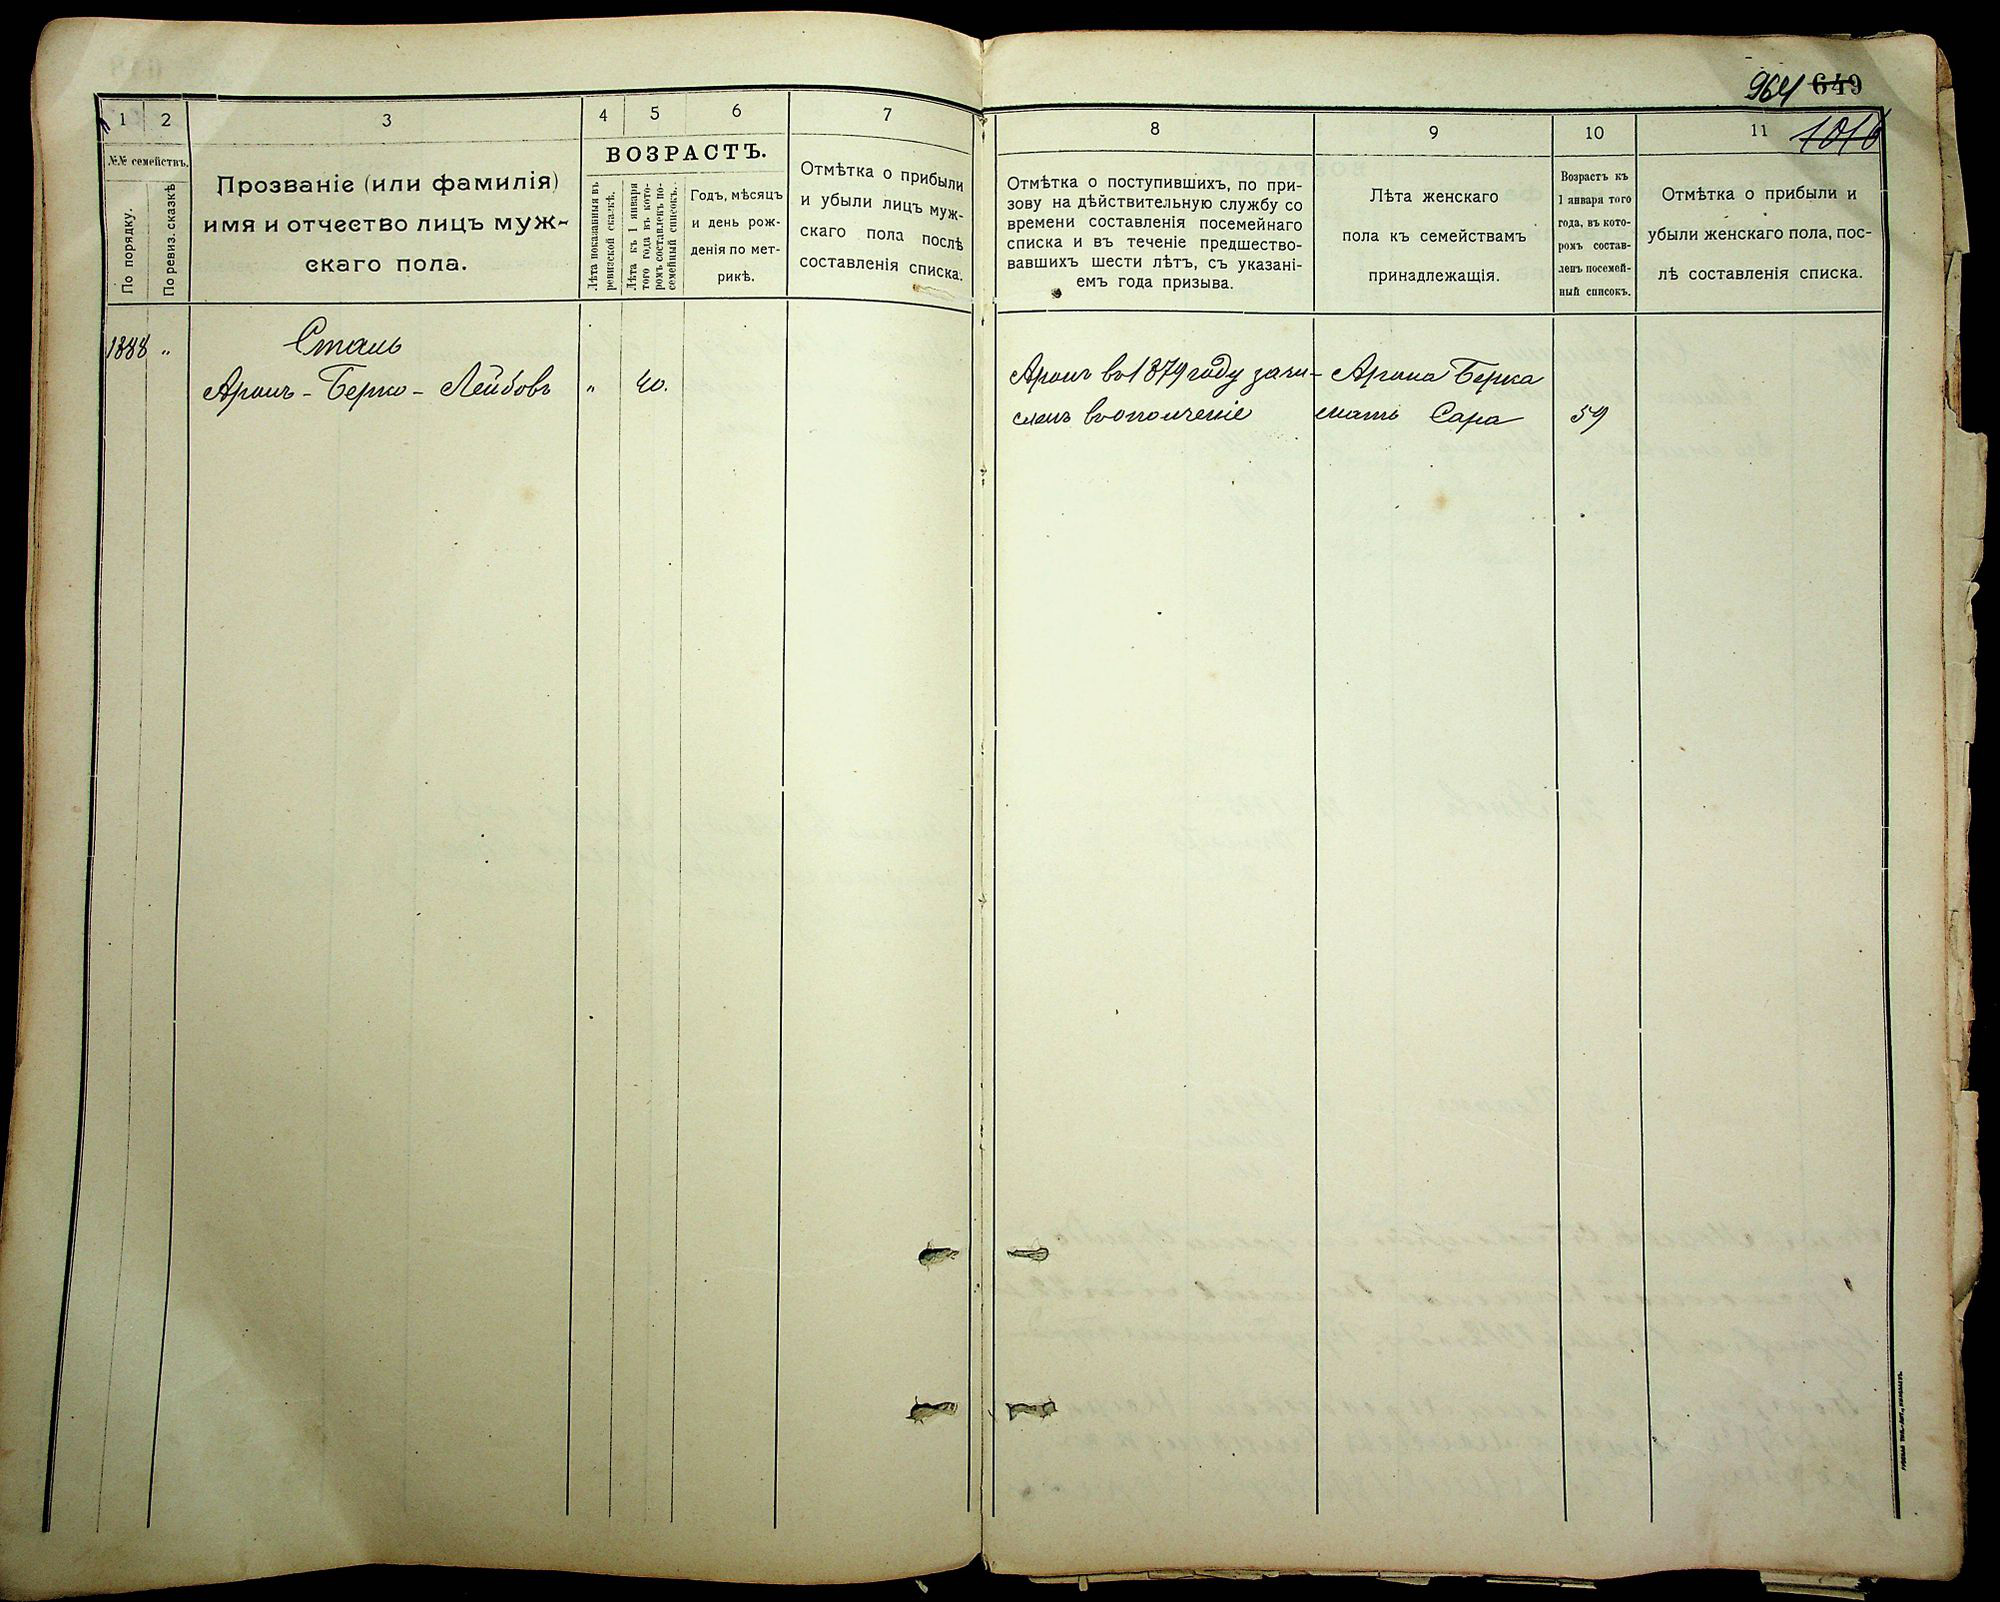 964 649
1 2 3 4 5 6 7
№№ семействъ.
По порядку.
По ревиз. сказкѣ
Прозваніе (или фамилія)
имя и отчество лицъ муж-
скаго пола.
ВОЗРАСТЪ.
Лѣта показанныя въ
ревизской сказкѣ.
Лѣта къ 1 января
того года въ кото-
ромъ составленъ по-
семейный списокъ.
Годъ, мѣсяцъ
и день рож-
денія по мет-
рикѣ.
Отмѣтка о прибыли
и убыли лицъ муж-
скаго пола послѣ
составленія списка.
8 9 10 11 1016
Отмѣтка о поступившихъ, по при-
зову на дѣйствительную службу со
времени составленія посемейнаго
списка и въ теченіе предшество-
вавшихъ шести лѣтъ, съ указані-
емъ года призыва.
Лѣта женскаго
пола къ семействамъ
принадлежащія.
Возрастъ къ
1 января того
года, въ кото-
ромъ состав-
ленъ посемей-
ный списокъ.
Отмѣтка о прибыли и
убыли женскаго пола, пос-
лѣ составленія списка.
1888 „ Сталь
Аронъ - Берко - Лейбовъ „ 40.
Аронъ въ 1879 году зачи-
сленъ въ ополченіе
Арона Берка
мать Сара 59